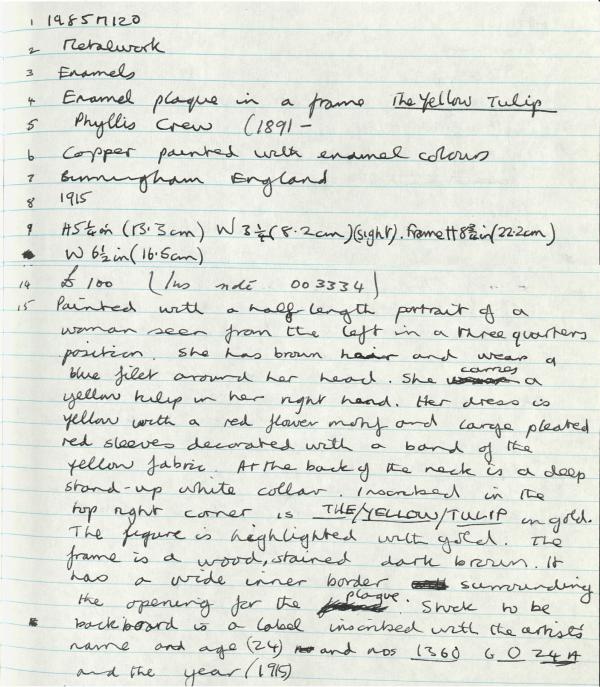 1 1985M120
2 Metalwork
3 Enamels
4 Enamel plaque in a frame The Yellow Tulip
5 Phyllis Crew (1891 –
6 Copper painted with enamel colours
7 Birmingham England
8 1915
9 H5¼in (13.3cm) W 3¼ (8.2cm)(sight). Frame H8¾in(22.2cm)
W 6½in(16.5cm)
14 £100 (Ins note 003334)
15 Painted with a half length portrait of a
woman seen from the left in a three quarters
position. She has brown hair and wears a
blue filet around her head. She carries a
yellow tulip in her right hand. Her dress is
yellow with a red flower motif and large pleated
red sleeves decorated with a band of the
yellow fabric. At the back of the neck is a deep
stand-up white collar. Inscribed in the
top right corner is THE/YELLOW/TULIP in gold.
The figure is highlighted with gold. The
frame is a wood, stained dark brown. It
has a wide inner border surrounding
the opening for the plaque. Stuck to be
backboard is a label inscribed with the artists
name and age (24) and nos 1360 G O 24A
and the year (1915)